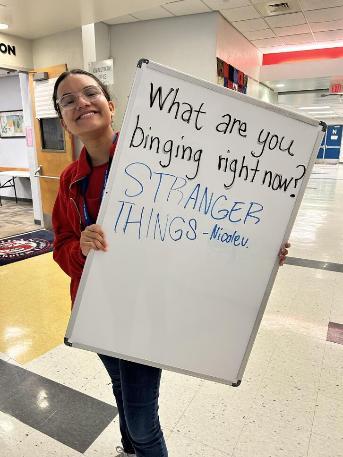 What are you
binging right now?
STRANGER
THINGS - Nicole v.